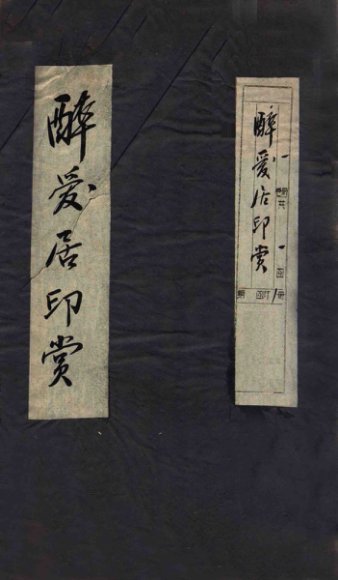 醉爱居印赏
醉爱居印赏